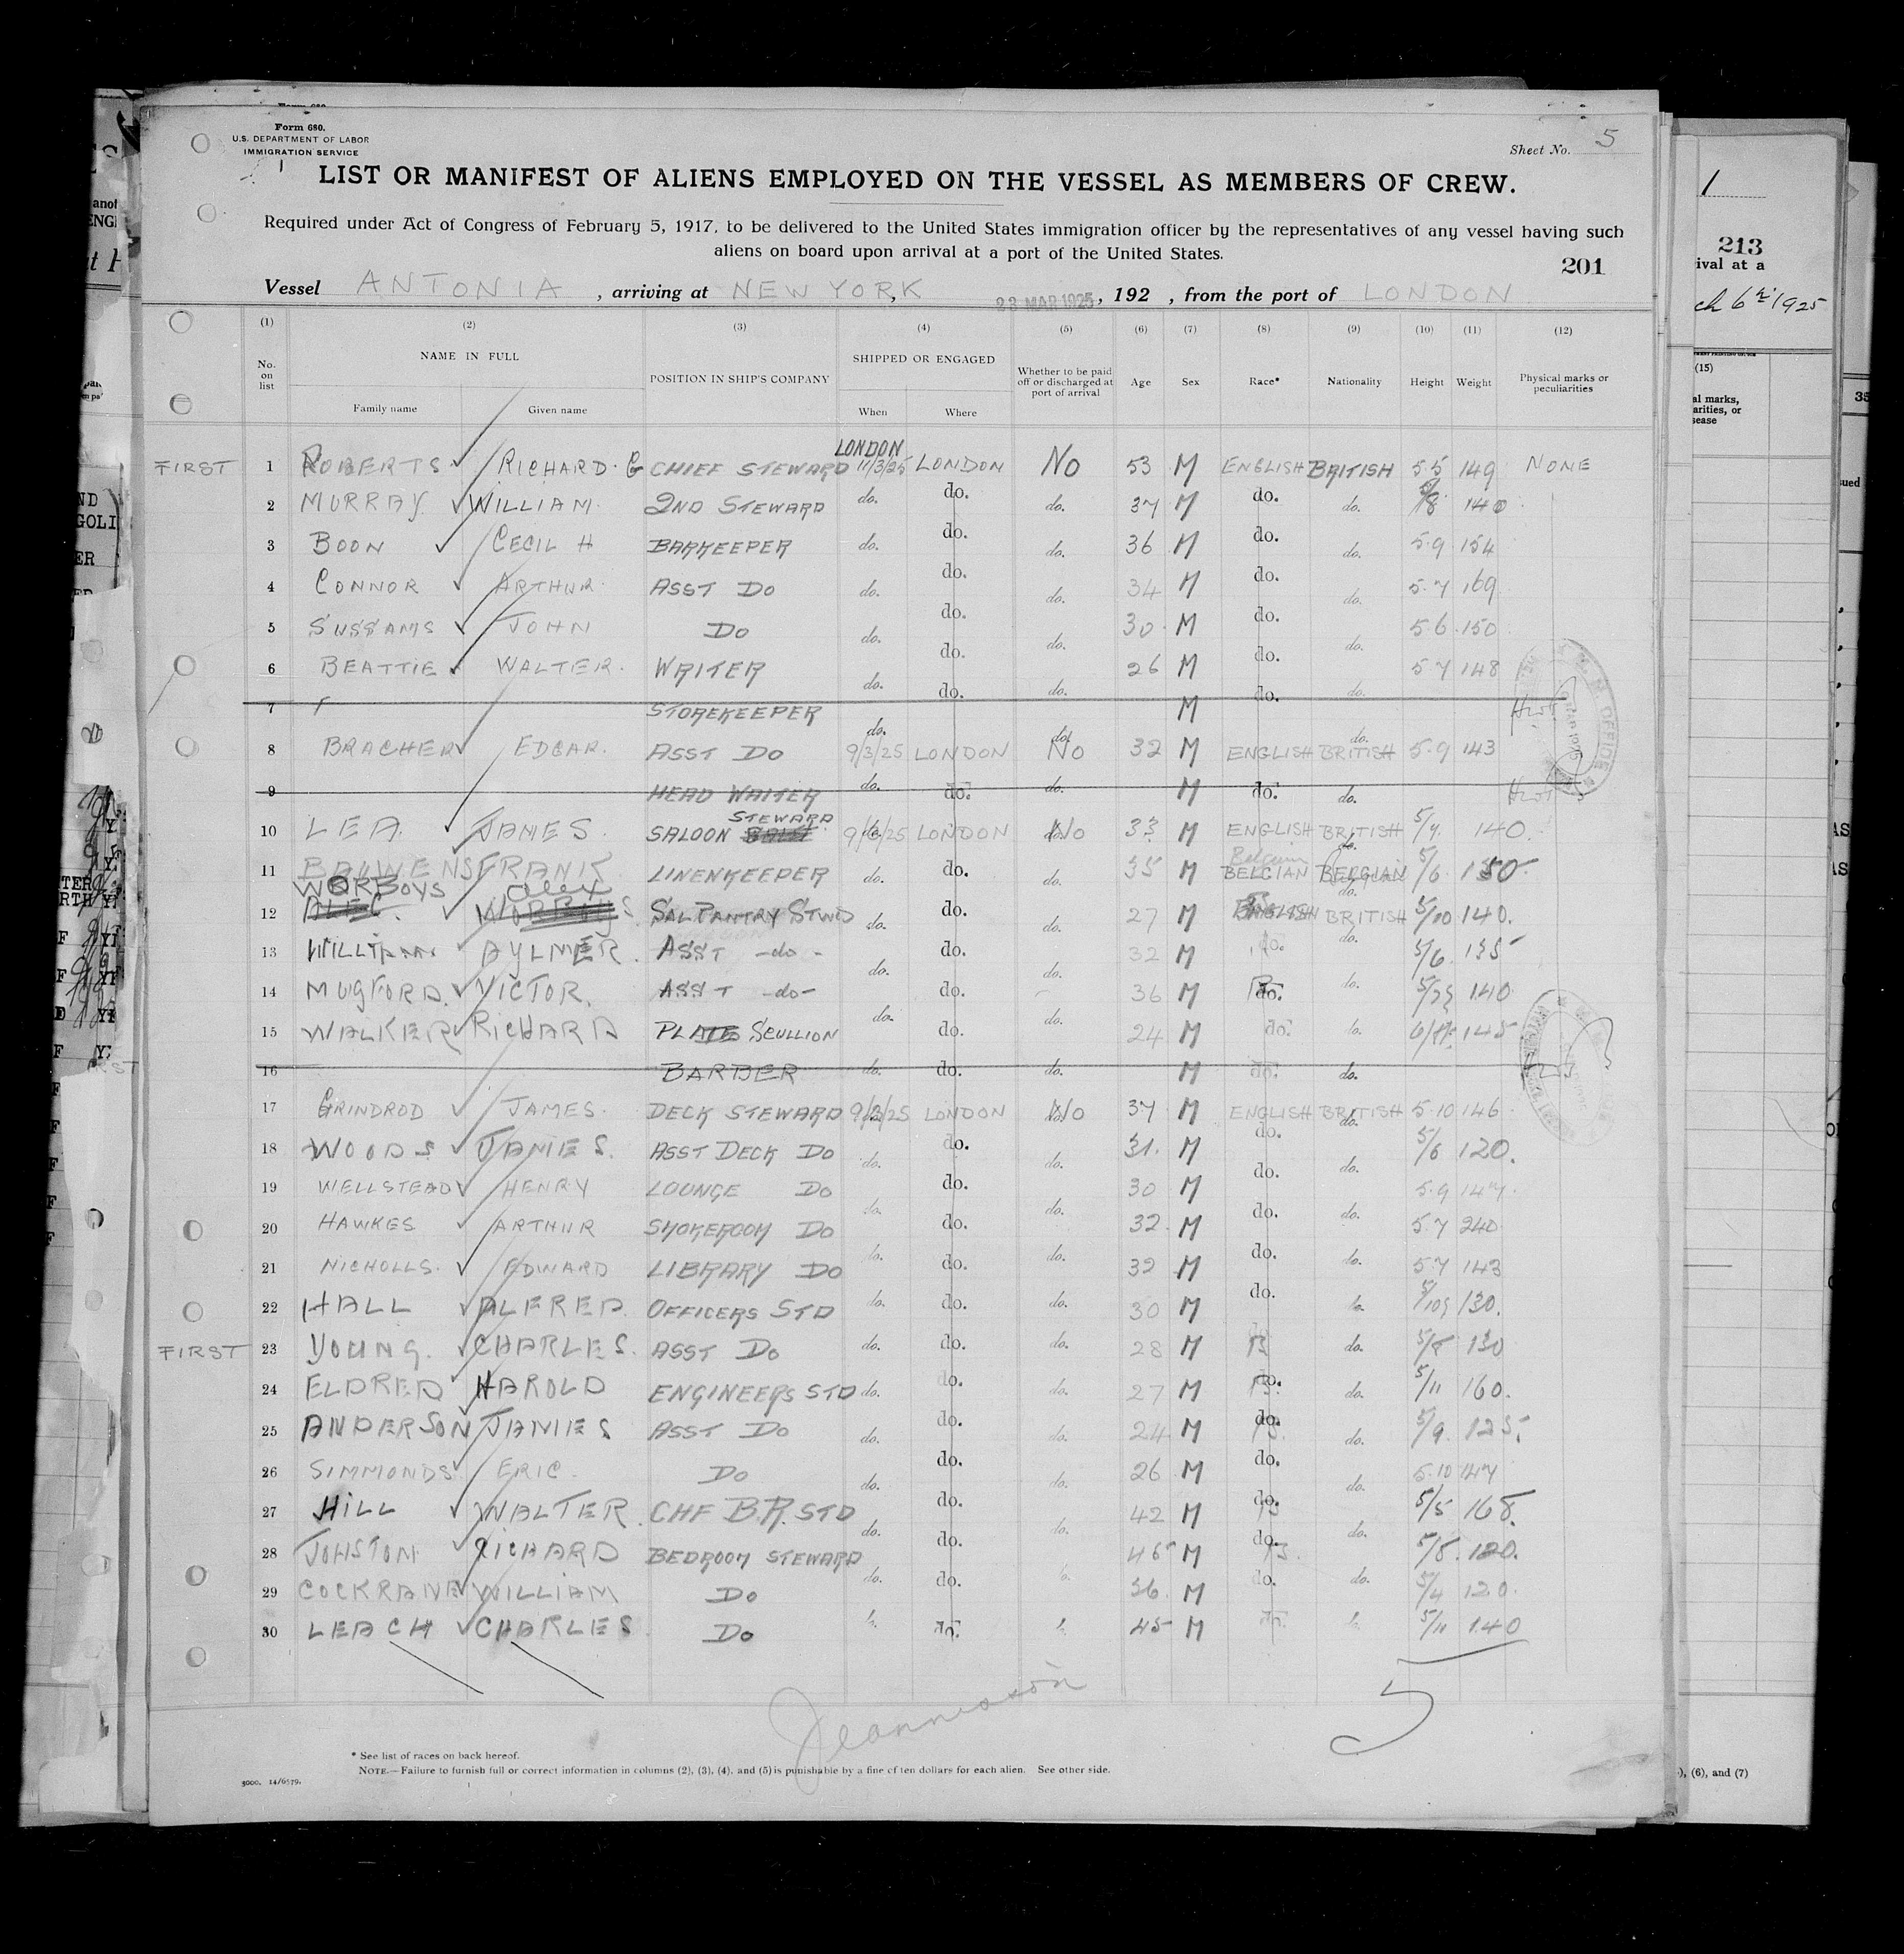 Form 680.
U.S. DEPARTMENT OF LABOR
IMMIGRATION SERVICE
Sheet No. 5
LIST OR MANIFEST OF ALIENS EMPLOYED ON THE VESSEL AS MEMBERS OF CREW.
Required under Act of Congress of February 5, 1917, to be delivered to the United States immigration officer by the representatives of any vessel having such
aliens on board upon arrival at a port of the United States.
201
Vessel ANTONIA, arriving at NEW YORK, 23 MAR 1925, 192 , from the port of LONDON
(1) (2) (3) (4) (5) (6) (7) (8) (9) (10) (11) (12)
No. on list NAME IN FULL POSITION IN SHIP'S COMPANY SHIPPED OR ENGAGED Whether to be paid off or discharged at port of arrival Age Sex Race* Nationality Height Weight Physical marks or peculiarities
Family name Given name When Where
LONDON
FIRST 1 ROBERTS RICHARD. G CHIEF STEWARD 11/3/25 LONDON No 53 M ENGLISH BRITISH 5.5 149 NONE
2 MURRAY WILLIAM. 2ND STEWARD do. do. do. 37 M do. do. 5/8 140
3 BOON CECIL H BARKEEPER do. do. do. 36 M do. do. 5.9 154
4 CONNOR ARTHUR. ASST DO do. do. do. 34 M do. do. 5.7 169
5 SUSSAMS JOHN DO do. do. do. 30 M do. do. 5.6 150
6 BEATTIE WALTER. WRITER do. do. do. 26 M do. do. 5.7 148
7 STOREKEEPER do. do. do. M do. do.
8 BRACHER EDGAR. ASST DO 9/3/25 LONDON No 32 M ENGLISH BRITISH 5.9 143
9 HEAD WAITER do. do. do. M do. do.
STEWARD
10 LEA. JAMES. SALOON 9/3/25 LONDON No 33 M ENGLISH BRITISH 5/7. 140.
11 BAUWENS FRANK LINENKEEPER do. do. do. 35 M BELGIAN BELGIAN 5/6 150
WORBOYS Alex
12 ALEC. WORBOYS SAL PANTRY STWD do. do. do. 27 M ENGLISH BRITISH 5/10 140.
13 WILLIAMS AYLMER. ASST -do- do. do. do. 32 M do. do. 5/6. 135
14 MUGFORD. VICTOR. ASST -do- do. do. 36 M do. do. 140
15 WALKER RICHARD PLATE SCULLION do. do. do. 24 M do. do. 145
16 BARBER do. do. do. M do. do.
17 GRINDROD JAMES. DECK STEWARD 9/3/25 LONDON No 37 M ENGLISH BRITISH 5.10 146
18 WOODS JAMES. ASST DECK DO do. do. do. 31. M do. do. 5/6 120.
19 WELLSTEAD HENRY LOUNGE DO do. do. do. 30 M do. do. 5.9 147.
20 HAWKES ARTHUR SMOKEROOM DO do. do. do. 32. M do. do. 5.7 240
21 NICHOLLS. EDWARD LIBRARY DO do. do. do. 32 M do. do. 5.7 143
22 HALL ALFRED. OFFICERS STD do. do. do. 30 M do. do. 130.
FIRST 23 YOUNG. CHARLES. ASST DO do. do. do. 28 M do. 130
24 ELDRED HAROLD ENGINEERS STD do. do. do. 27 M do. do. 5/11 160.
25 ANDERSON JAMES ASST DO do. do. do. 24 M do. do. 5/9. 125.
26 SIMMONDS. ERIC. DO do. do. do. 26 M do. do. 5.10 147
27 HILL WALTER. CHF B.R. STD do. do. do. 42 M do. do. 5/5 168.
28 JOHSTON RICHARD BEDROOM STEWARD do. do. 45 M do. do. 120.
29 COCKRANE WILLIAM DO do. do. 36. M do. do. 5/4 120.
30 LEACH CHARLES. DO do. 45 M do. 5/11 140
5
* See list of races on back hereof.
NOTE.—Failure to furnish full or correct information in columns (2), (3), (4), and (5) is punishable by a fine of ten dollars for each alien. See other side.
3000. 14/6579.
1
213
ival at a
ch 6th 1925
(15)
al marks,
arities, or
sease
), (6), and (7)